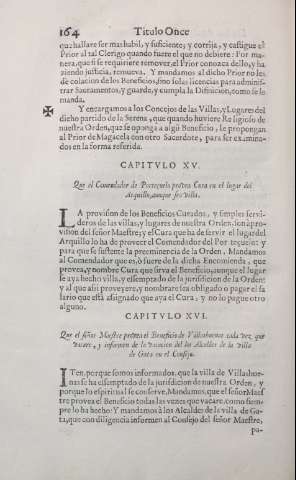 164 Titulo Once
que hallare ser mas habil, y suficiente; y corrija, y castigue el
Prior al tal Clerigo quando fuere el que no debiere: Por ma-
nera, que si se requiriere remover, el Prior conozca dello, y ha
ziendo justicia, remueva. Y mandamos al dicho Prior no les
dè colacion de los Beneficios, sino solas licencias para adminis-
trar Sacramentos; y guarde, y cumpla la Difinicion, como se le
manda.
Y encargamos a los Concejos de las Villas, y Lugares del
dicho partido de la Serena, que quando huviere Religioso de
nuestra Orden, que se oponga a algũ Beneficio, le propongan
al Prior de Magacela con otro Sacerdote, para ser examina-
dos en la forma referida.
CAPITVLO XV.
Que el Comendador de Portezuelo provea Cura en el lugar del
Arquillo, aunque sea villa.
LA provision de los Beneficios Curados, y simples servi-
deros de las villas, y lugares de nuestra Orden, son à pro-
vision del señor Maestre; y el Cura que ha de servir el lugar del
Arquillo lo ha de proveer el Comendador del Portezuelo: y
para que se sustente la preeminencia de la Orden, Mandamos
al Comendador que es, ò fuere de la dicha Encomienda, que
provea, y nombre Cura que sirva el Beneficio, aunque el lugar
se aya hecho villa, y essemptado de la jurisdicion de la Orden:
y al que assi proveyere, y nombrare sea obligado o pagar el sa
lario que està assignado que aya el Cura; y no lo pague otro
alguno.
CAPITVLO XVI.
Que el señor Maestre provea el Beneficio de Villasbuenas cada vez que
vacare, y informen de la vacacion del los Alcaldes de la villa
de Gata en el Consejo.
ITen, porque somos informados, que la villa de Villasbue-
nas se ha essemptado de la jurisdicion de nuestra Orden, y
porque lo espiritual se conserve, Mandamos, que el señor Maes
tre provea el Beneficio todas las vezes que vacare, como siem-
pre lo ha hecho: Y mandamos à los Alcaldes de la villa de Ga-
ta, que con diligencia informen al Consejo del señor Maestre,
pa-